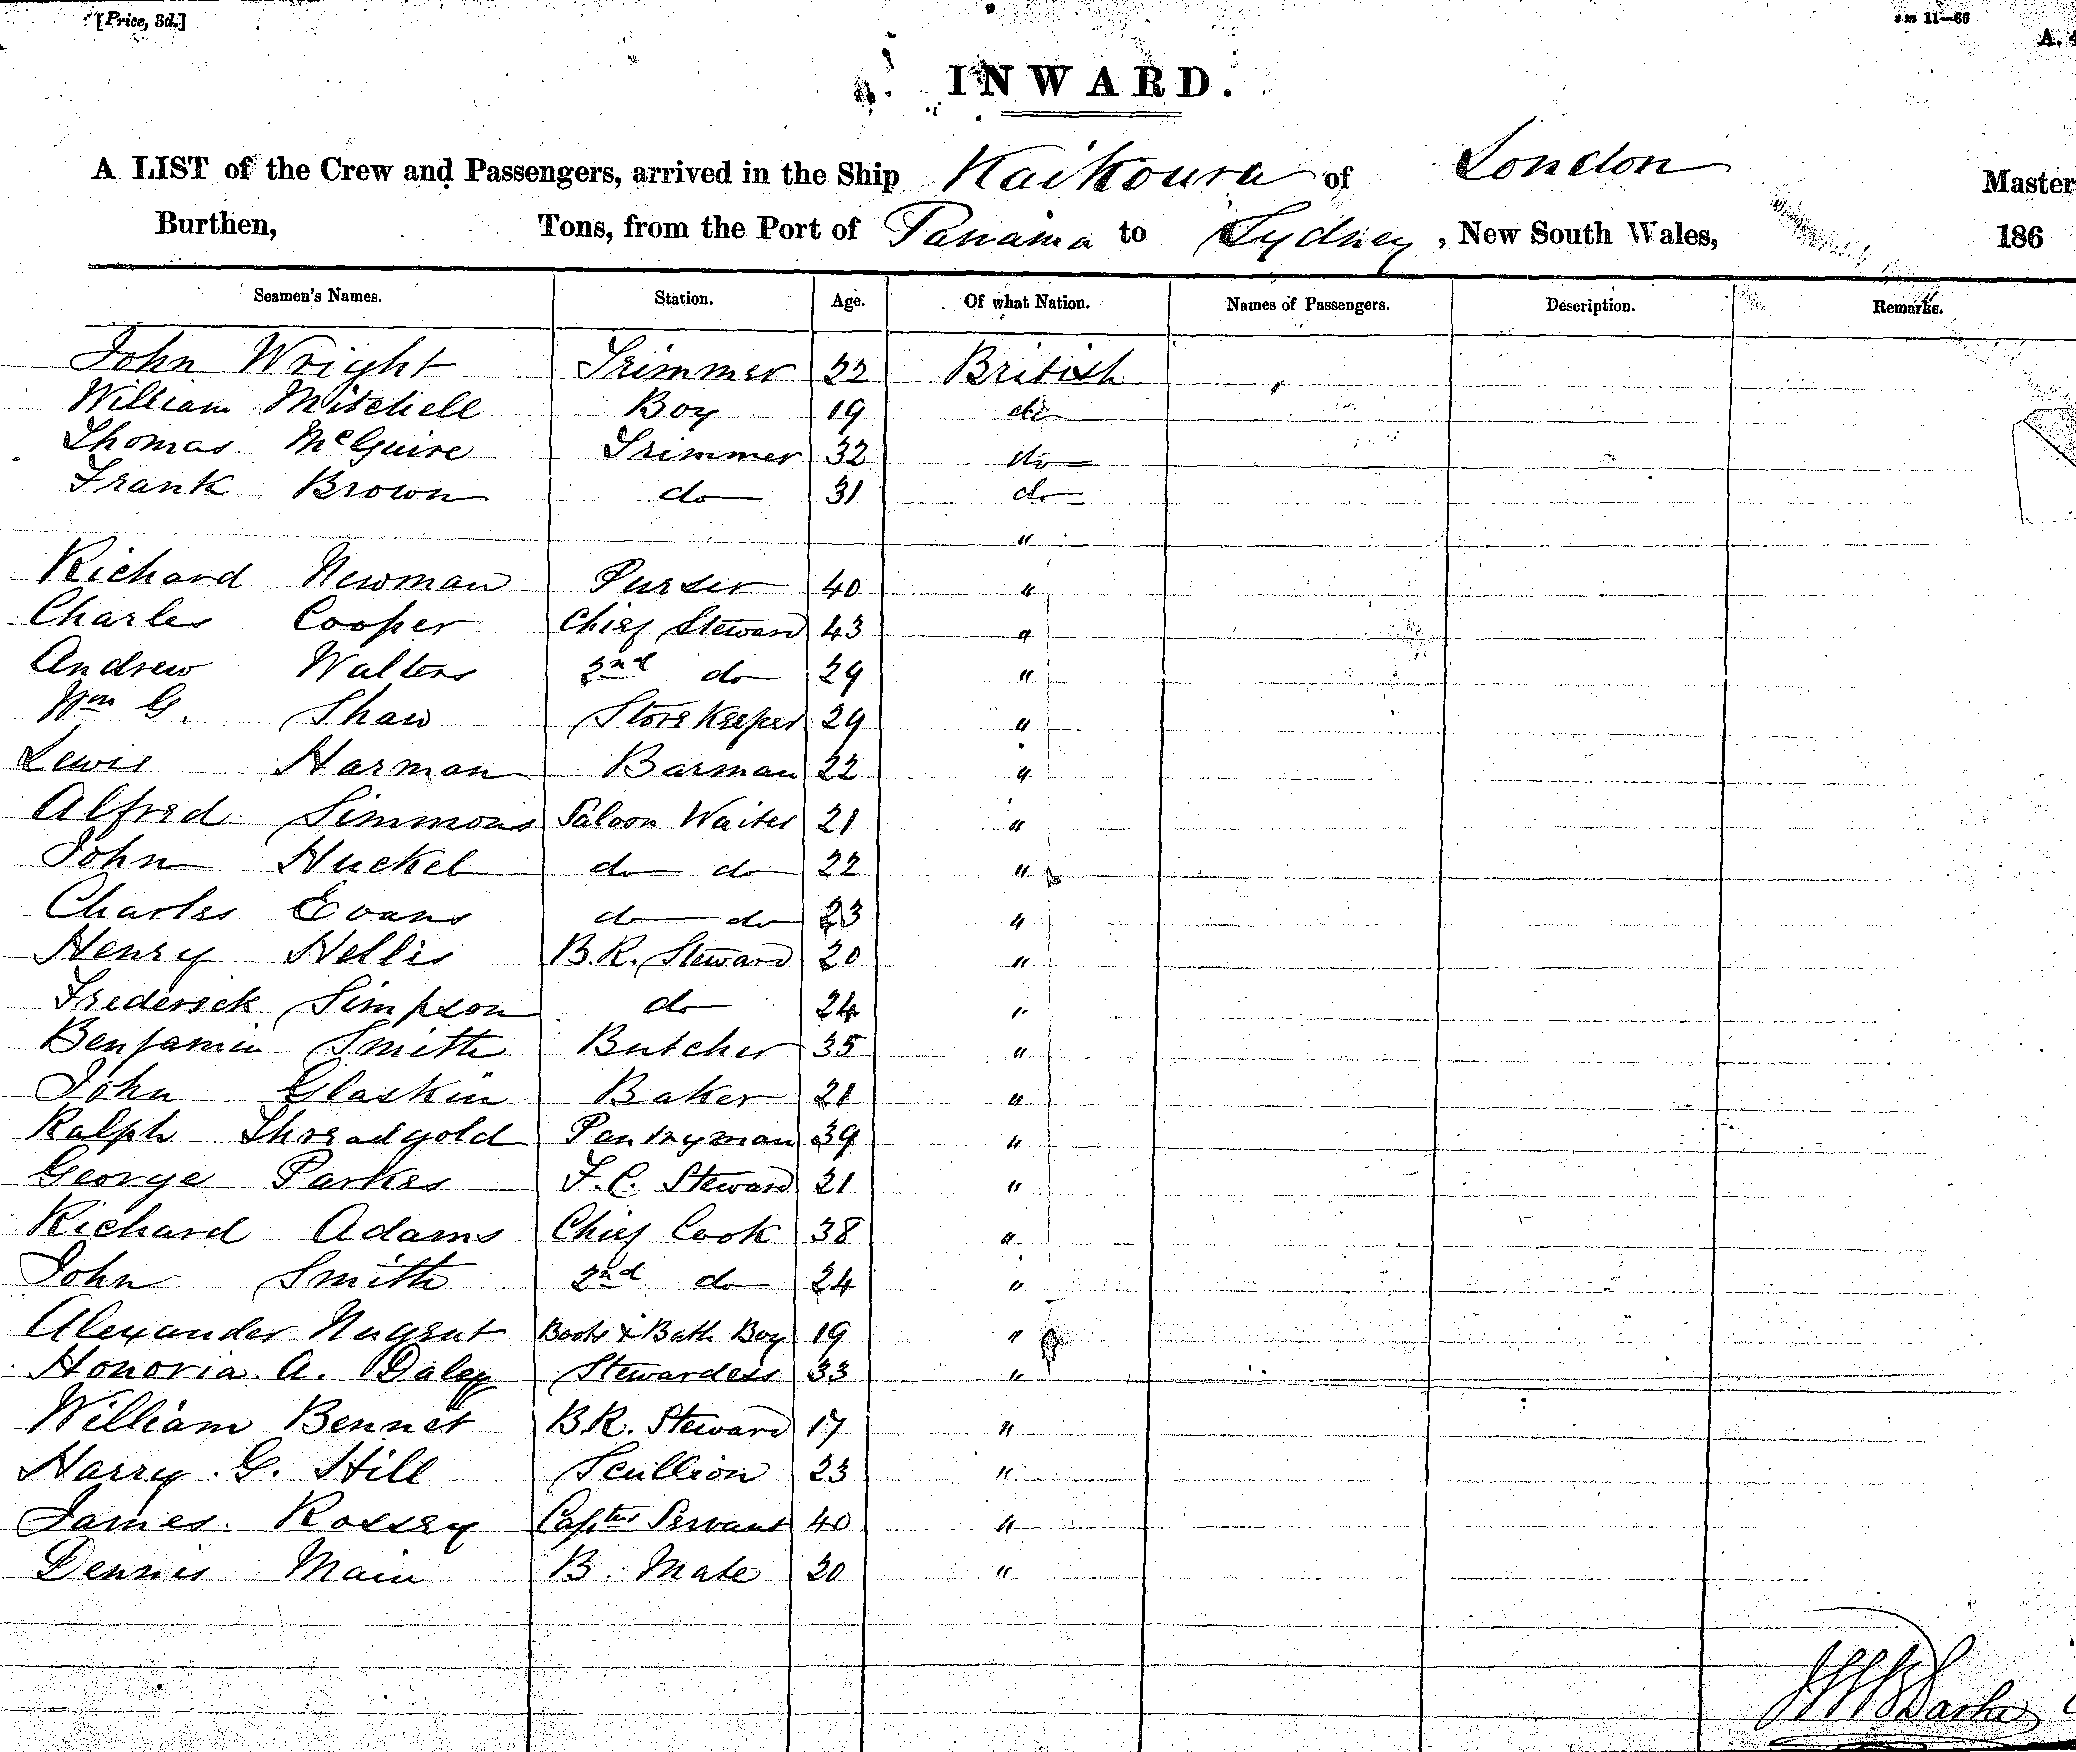 [Price, 3d.]
11—66
INWARD.
A LIST of the Crew and Passengers, arrived in the Ship Kaikoura of London Master
Burthen, Tons, from the Port of Panama to Sydney, New South Wales, 186
Seamen's Names. Station. Age. Of what Nation. Names of Passengers. Description. Remarks.
John Wright Trimmer 22 British
William Mitchell Boy 19 do
Thomas McGuire Trimmer 32 do
Frank Brown do 31 do
"
Richard Newman Purser 40 "
Charles Cooper Chief Steward 43 "
Andrew Walters 2nd do 29 "
Wm G. Shaw Store Keeper 29 "
Lewis Harman Barman 22 "
Alfred Simmons Saloon Waiter 21 "
John Huckel do do 22 "
Charles Evans do do 23 "
Henry Hellis B.R. Steward 20 "
Frederick Simpson do 24 "
Benjamin Smith Butcher 35 "
John Glaskin Baker 21 "
Ralph Threadgold Pantryman 39 "
George Parkes F.C. Steward 21 "
Richard Adams Chief Cook 38 "
John Smith 2nd do 24 "
Alexander Nugent Boots & Bath Boy 19 "
Honoria A. Daley Stewardess 33 "
William Bennet B.R. Steward 17 "
Harry G. Hill Scullion 23 "
James Rossey Captns Servant 40 "
Dennis Main B. Mate 30 "